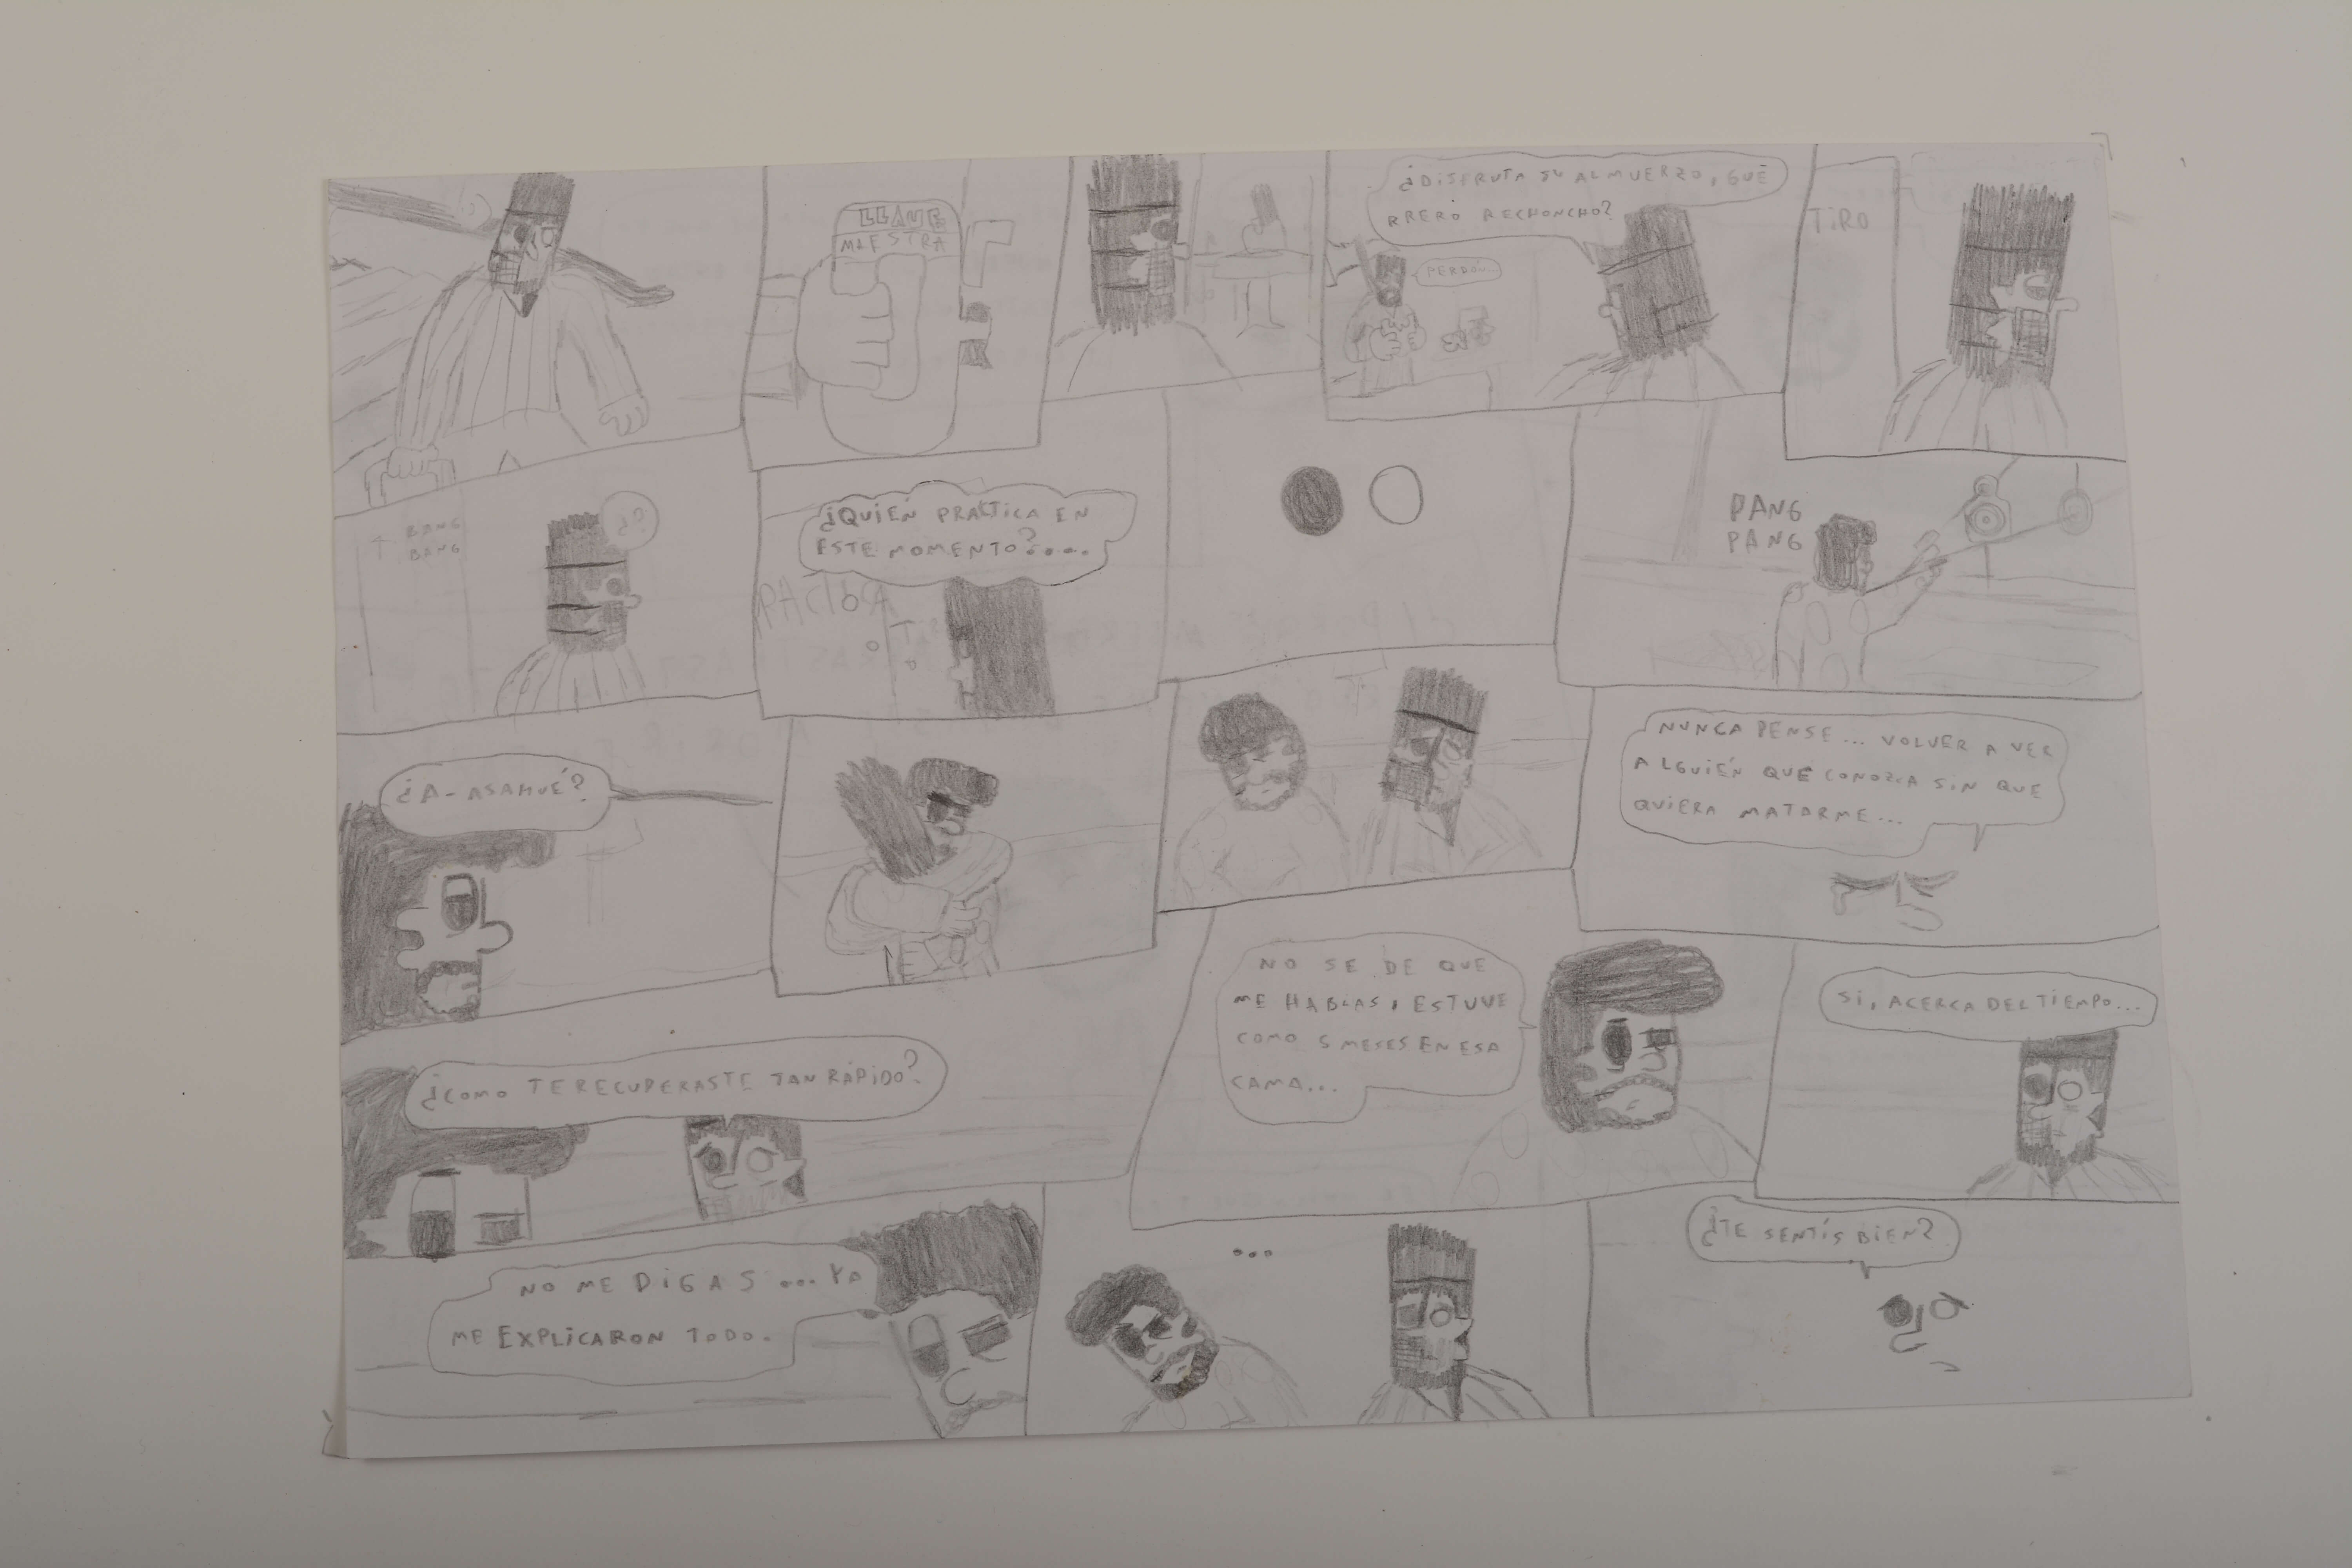 LLAVE
MAESTRA
¿DISFRUTA SU ALMUERZO, GUE
RRERO RECHONCHO?
PERDÓN...
TIRO
BANG
BANG
¿?
¿QUIÉN PRACTICA EN
ESTE MOMENTO?....
PANG
PANG
¿A-ASAHUÉ?
NUNCA PENSE... VOLVER A VER
ALGUIÉN QUE CONOZCA SIN QUE
QUIERA MATARME...
¿COMO TE RECUPERASTE TAN RÁPIDO?
NO SE DE QUE
ME HABLAS, ESTUVE
COMO 5 MESES EN ESA
CAMA...
SI, ACERCA DEL TIEMPO...
NO ME DIGAS... YA
ME EXPLICARON TODO.
...
¿TE SENTÍS BIEN?